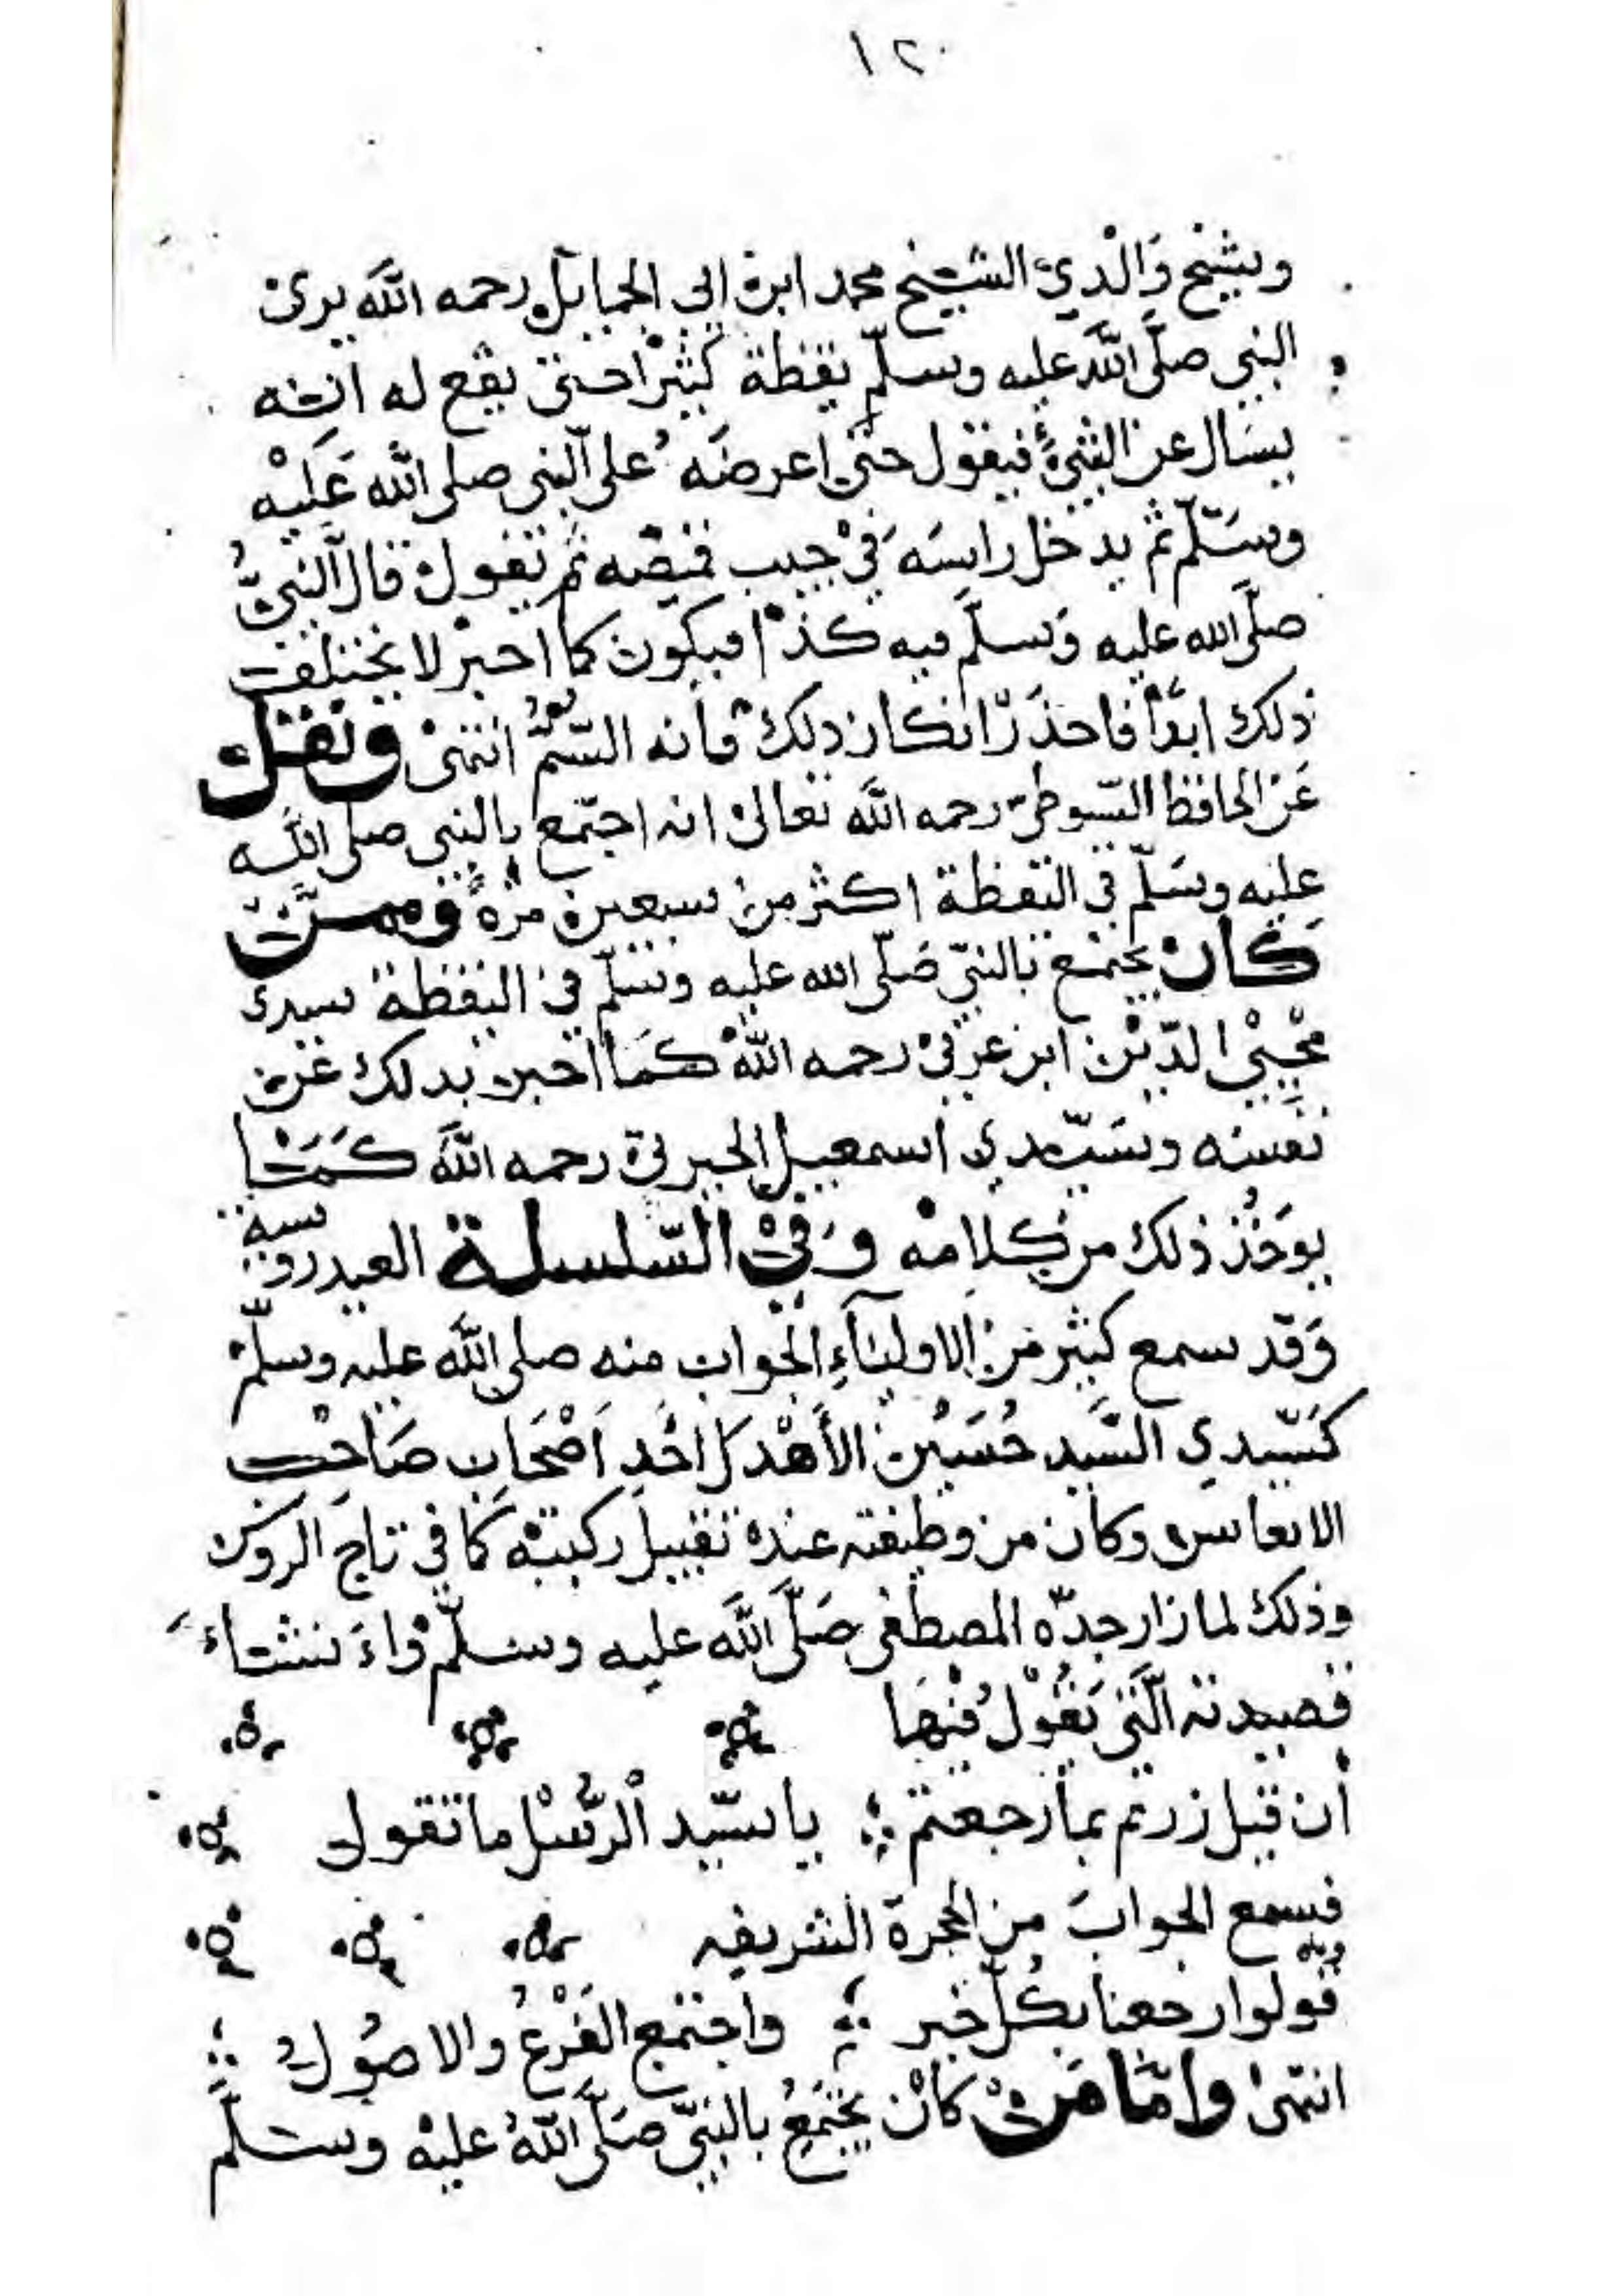 ١٢٠
وشيخ والدي الشيخ محمد ابن ابي الحمايل رحمه الله يرى
النبي صلى الله عليه وسلم يقظة كثيرا حتى يقع له انه
يسال عن الشيء فيقول حتى اعرضه على النبي صلى الله عليه
وسلم ثم يدخل راسه في جيب قميصه ثم يقول قال النبي
صلى الله عليه وسلم فيه كذا فيكون كما اخبر لا يختلف
ذلك ابدا فاحذر انكار ذلك فانه السم انتهى ونقل
عن الحافظ السيوطي رحمه الله تعالى انه اجتمع بالنبي صلى الله
عليه وسلم في اليقظة اكثر من سبعين مرة وممن
كان يجتمع بالنبي صلى الله عليه وسلم في اليقظة سيدى
محيي الدين ابن عربي رحمه الله كما اخبر بذلك عن
نفسه وسيدي اسمعيل الجبرتي رحمه الله كما
يوخذ ذلك من كلامه وفي السلسلة العيدروسية
وقد سمع كثير من الاولياء الجواب منه صلى الله عليه وسلم
كسيدي السيد حسين الأهدل احد اصحاب صاحب
الانفاس وكان من وظيفته عنده تقبيل ركبته كما في تاج العروس
وذلك لما زار جده المصطفى صلى الله عليه وسلم وانشاء
قصيدته التي يقول فيها
أن قيل زرتم بما رجعتم ؛ يا سيد الرسل ما تقول
فسمع الجواب من الحجرة الشريفه
قولوا رجعنا بكل خير ؛ واجتمع الفرع والاصول
انتهى واما من كان يجتمع بالنبي صلى الله عليه وسلم